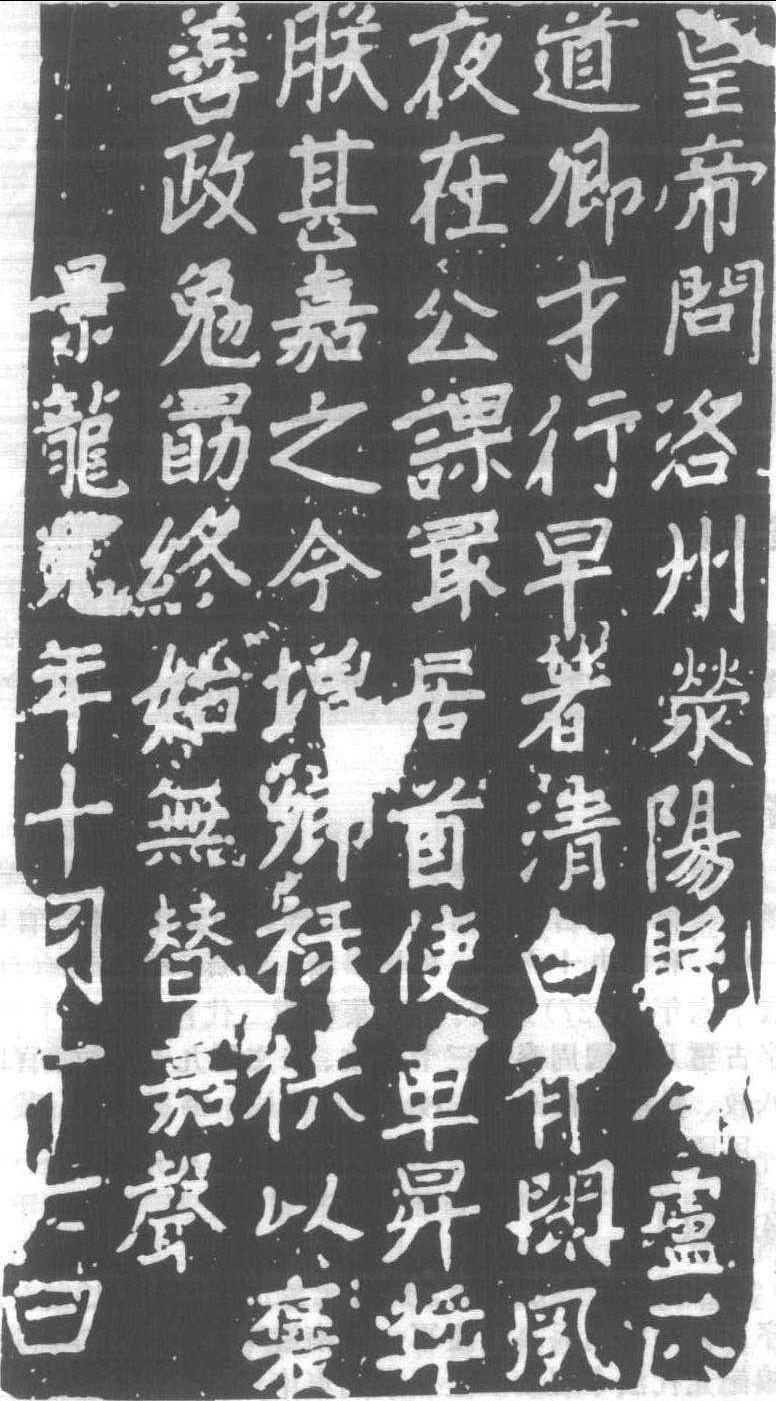 皇帝問洛州滎陽縣令盧正
道卿才行早著清白有聞夙
夜在公課最居首使車昇獎
朕甚嘉之今增卿祿秩以褒
善政勉勗終始無替嘉聲
景龍元年十月十七日